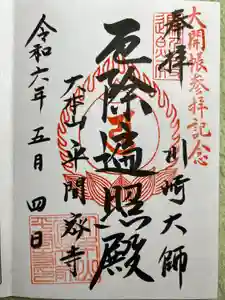 大開帳参拝記念
奉拝
川崎大師
厄除遍照殿
大本山平間寺
令和六年五月四日